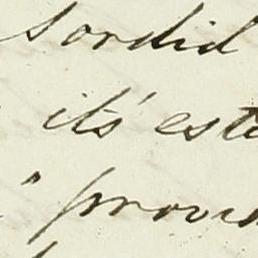 sordid
it's est
" prov